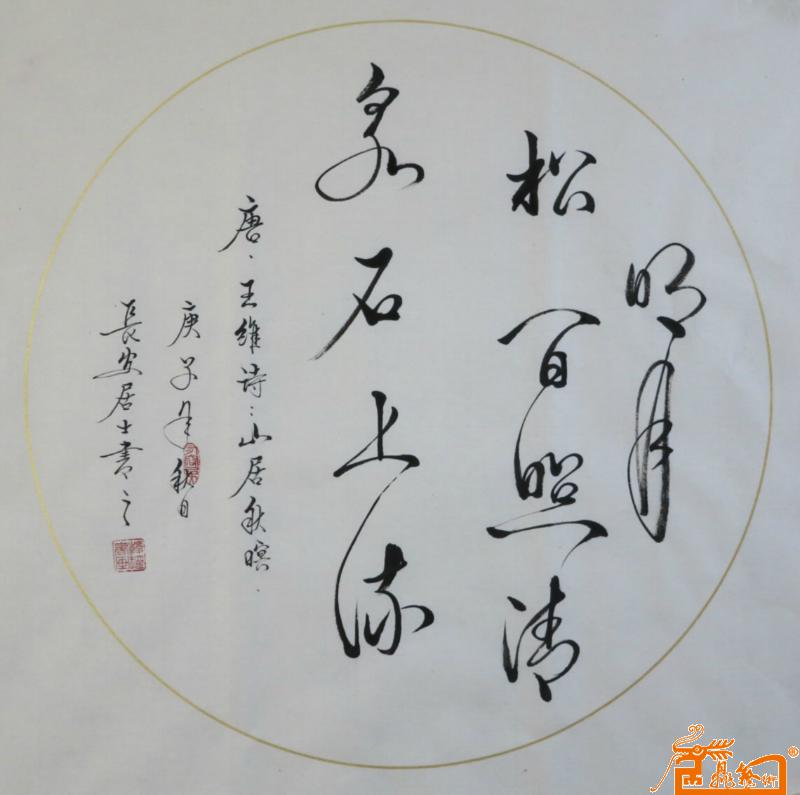 明月
松间照清
泉石上流
唐·王維诗：山居秋暝·
庚子年秋日
長安居士書之